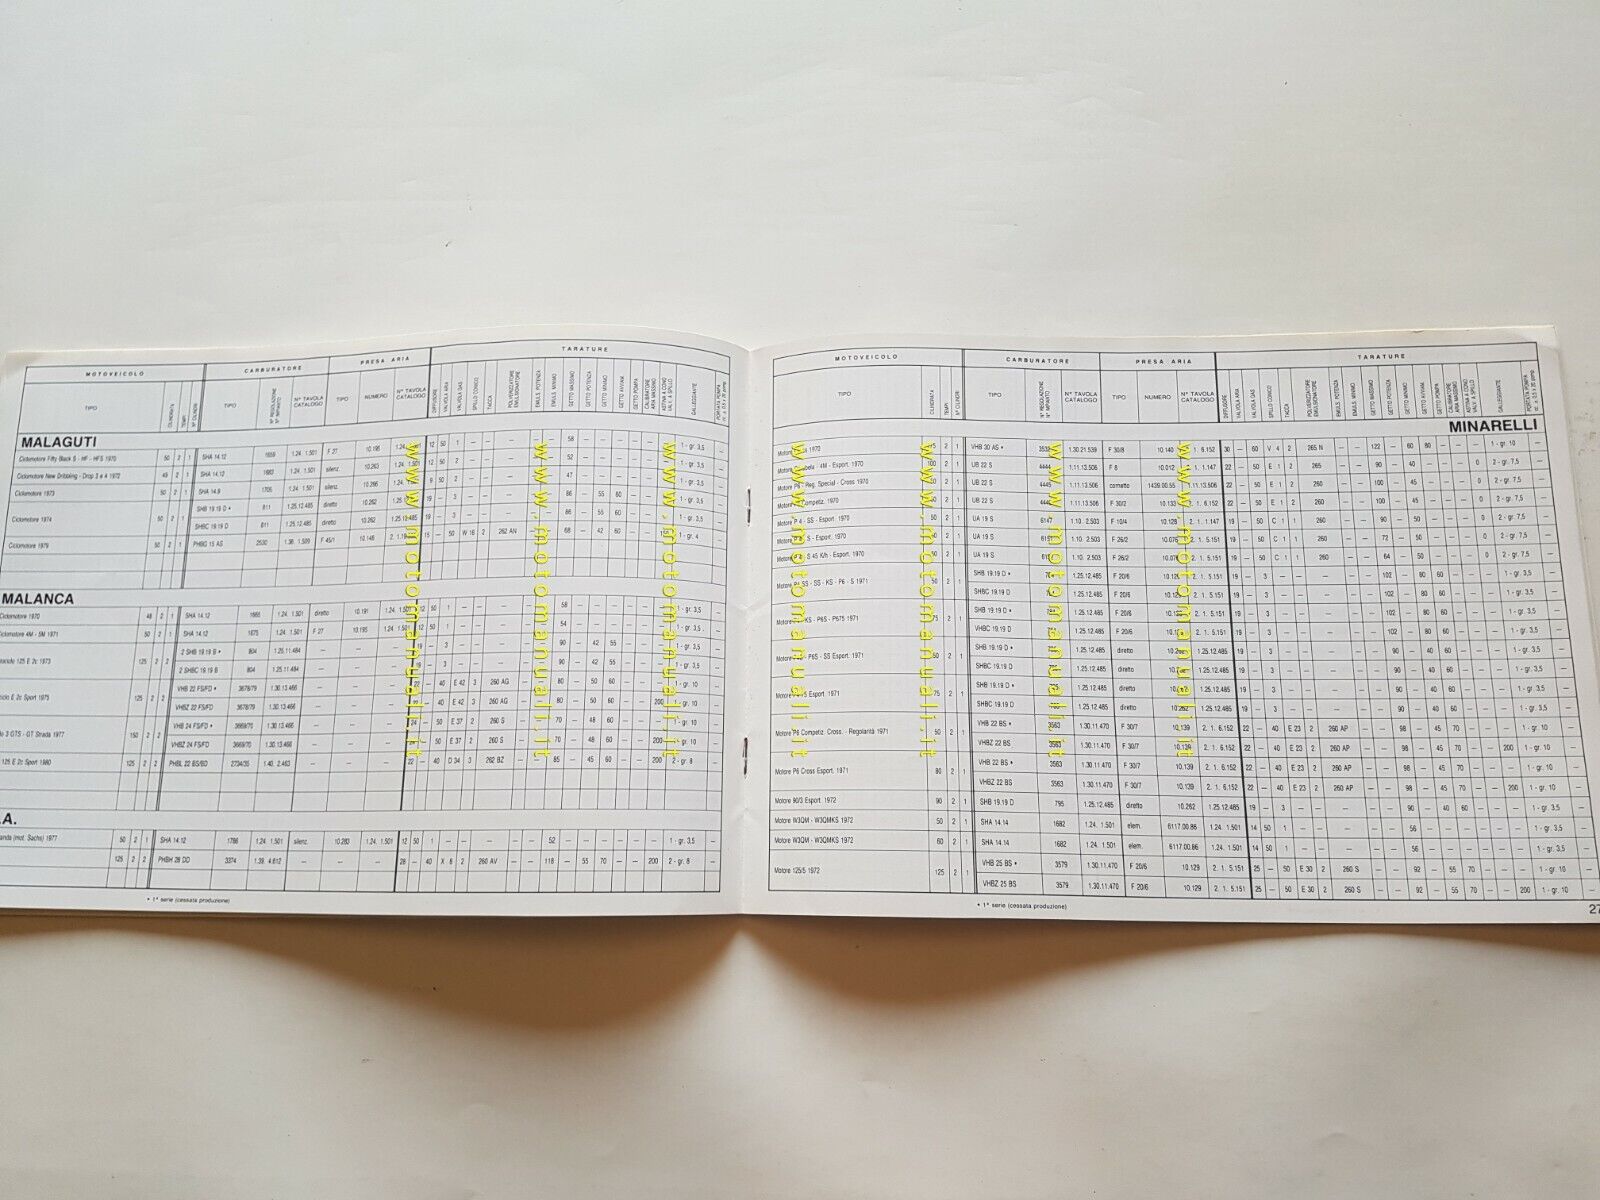 MOTOVEICOLO CARBURATORE PRESA ARIA TARATURE
TIPO CILINDRATA TEMPI N° CILINDRI TIPO N° REGOLAZIONE N° IMPIANTO N° TAVOLA CATALOGO TIPO NUMERO N° TAVOLA CATALOGO DIFFUSORE VALVOLA ARIA VALVOLA GAS SPILLO CONICO TACCA POLVERIZZATORE EMULSIONATORE EMULS. POTENZA EMULS. MINIMO GETTO MASSIMO GETTO POTENZA GETTO MINIMO GETTO AVVIAM. GETTO POMPA CALIBRATORE ARIA MASSIMO ASTINA A CONO VALV. A SPILLO GALLEGGIANTE PORTATA POMPA
MALAGUTI
Ciclomotore Fifty Black S - HF - HFS 1970 50 2 1 SHA 14.12 1659 1.24. 1.501 F 27 10.195 12 50 1 58 1 - gr. 3,5
Ciclomotore New Dribbling - Drop 3 e 4 1972 49 2 1 SHA 14.12 1.24. 1.501 silenz. 10.283 12 50 2 52 1 - gr. 3,5
Ciclomotore 1973 50 2 1 SHA 14.9 1.24. 1.501 silenz. 9 50 2 47 1 - gr. 3,5
Ciclomotore 1974 50 2 1 SHB 19.19 D • 811 1.25.12.485 diretto 19 3 86 55 60 1 - gr. 3,5
SHBC 19.19 D 811 1.25.12.485 diretto 10.262 1.25.12.485 19 3 86 55 60 1 - gr. 3,5
Ciclomotore 1979 50 2 1 PHBG 15 AS 2530 F 45/1 15 50 W 16 2 262 AN 68 42 60 1 - gr. 4
MALANCA
Ciclomotore 1970 48 2 1 SHA 14.12 1665 1.24. 1.501 diretto 10.191 12 50 1 58 1 - gr. 3,5
4M - 5M 1971 50 2 1 SHA 14.12 1675 1.24. 1.501 F 27 10.195 1.24. 1.501 12 50 1 54 1 - gr. 3,5
125 E 2c 1973 125 2 2 2 SHB 19.19 B • 804 1.25.11.484 3 90 42 55 1 - gr. 3,5
2 SHBC 19.19 B 804 1.25.11.484 3 90 42 55 1 - gr. 3,5
E 2c Sport 1975 125 2 2 VHB 22 FS/FD • 3678/79 1.30.13.466 22 40 E 42 3 260 AG 80 50 60 1 - gr. 10
VHBZ 22 FS/FD 3678/79 1.30.13.466 40 E 42 3 260 AG 80 50 60 200 1 - gr. 10
3 GTS - GT Strada 1977 150 2 2 VHB 24 FS/FD • 3669/70 1.30.13.466 24 50 E 37 2 260 S 70 48 60 1 - gr. 10
VHBZ 24 FS/FD 3669/70 1.30.13.466 50 E 37 2 260 S 70 48 60 200 1 - gr. 10
125 E 2c Sport 1980 125 2 2 PHBL 22 BS/BD 2734/35 1.40. 2.463 22 40 D 34 3 262 BZ 85 45 60 200 2 - gr. 8
.A.
(mot. Sachs) 1977 50 2 1 SHA 14.12 1786 1.24. 1.501 silenz. 10.283 1.24. 1.501 12 50 1 52 1 - gr. 3,5
125 2 2 PHBH 28 DD 3374 1.39. 4.612 28 40 X 8 2 260 AV 118 55 70 200 2 - gr. 8
• 1ª serie (cessata produzione)
MOTOVEICOLO CARBURATORE PRESA ARIA TARATURE
TIPO CILINDRATA TEMPI N° CILINDRI TIPO N° REGOLAZIONE N° IMPIANTO N° TAVOLA CATALOGO TIPO NUMERO N° TAVOLA CATALOGO DIFFUSORE VALVOLA ARIA VALVOLA GAS SPILLO CONICO TACCA POLVERIZZATORE EMULSIONATORE EMULS. POTENZA EMULS. MINIMO GETTO MASSIMO GETTO POTENZA GETTO MINIMO GETTO AVVIAM. GETTO POMPA CALIBRATORE ARIA MASSIMO ASTINA A CONO VALV. A SPILLO GALLEGGIANTE PORTATA POMPA
MINARELLI
1972 2 1 VHB 30 AS • 1.30.21.539 F 30/8 10.140 1. 6.152 30 60 V 4 2 265 N 122 60 80 1 - gr. 10
4M - Esport. 1970 100 2 1 UB 22 S 4444 1.11.13.506 F 8 10.012 1. 1.147 22 50 E 1 2 265 90 40 0 2 - gr. 7,5
Reg. Special - Cross 1970 2 1 UB 22 S 4445 1.11.13.506 cornetto 1439.00.55 1.11.13.506 22 50 E 1 2 260 100 45 0 2 - gr. 7,5
Competiz. 1970 50 2 1 UB 22 S 1.11.13.506 F 30/2 10.133 22 50 E 1 2 260 100 45 0 2 - gr. 7,5
Motore P 4 - SS - Esport. 1970 50 2 1 UA 19 S 6147 1.10. 2.503 F 10/4 10.128 2. 1. 1.147 19 50 C 1 1 260 90 50 0 2 - gr. 7,5
S - Esport. 1970 2 1 UA 19 S 1.10. 2.503 F 26/2 10.076 2. 1. 5.151 19 50 C 1 1 260 72 50 0 2 - gr. 7,5
S 45 K/h - Esport. 1970 50 2 1 UA 19 S 1.10. 2.503 F 26/2 2. 1. 5.151 19 50 C 1 1 260 64 50 0 2 - gr. 7,5
SS - KS - P6 - S 1971 50 2 1 SHB 19.19 D • 1.25.12.485 F 20/6 2. 1. 5.151 19 3 102 80 60 1 - gr. 3,5
SHBC 19.19 D 1.25.12.485 F 20/6 2. 1. 5.151 19 3 102 80 60 1 - gr. 3,5
KS - P6S - P575 1971 75 2 1 SHB 19.19 D • 1.25.12.485 F 20/6 2. 1. 5.151 19 3 102 80 60 1 - gr. 3,5
VHBC 19.19 D 1.25.12.485 F 20/6 2. 1. 5.151 19 3 102 80 60 1 - gr. 3,5
P6S - SS Esport. 1971 50 2 1 SHB 19.19 D • 1.25.12.485 diretto 1.25.12.485 19 3 90 40 60 1 - gr. 3,5
SHBC 19.19 D 1.25.12.485 diretto 1.25.12.485 19 3 90 40 60 1 - gr. 3,5
Esport. 1971 75 2 1 SHB 19.19 D • 1.25.12.485 diretto 1.25.12.485 19 3 90 40 60 1 - gr. 3,5
SHBC 19.19 D 1.25.12.485 diretto 10.262 1.25.12.485 19 3 90 40 60 1 - gr. 3,5
Motore P6 Competiz. Cross. - Regolarità 1971 50 2 1 VHB 22 BS • 3563 1.30.11.470 F 30/7 10.139 2. 1. 6.152 22 40 E 23 2 260 AP 98 45 70 1 - gr. 10
VHBZ 22 BS 3563 1.30.11.470 F 30/7 10.139 2. 1. 6.152 22 40 E 23 2 260 AP 98 45 70 200 1 - gr. 10
Motore P6 Cross Esport. 1971 80 2 1 VHB 22 BS • 3563 1.30.11.470 F 30/7 10.139 2. 1. 6.152 22 40 E 23 2 260 AP 98 45 70 1 - gr. 10
VHBZ 22 BS 3563 1.30.11.470 F 30/7 10.139 2. 1. 6.152 22 40 E 23 2 260 AP 98 45 70 200 1 - gr. 10
Motore 90/3 Esport. 1972 90 2 1 SHB 19.19 D 795 1.25.12.485 diretto 10.262 1.25.12.485 19 3 90 40 60 1 - gr. 3,5
Motore W3QM - W3QMKS 1972 50 2 1 SHA 14.14 1682 1.24. 1.501 elem. 6117.00.86 1.24. 1.501 14 50 1 56 1 - gr. 3,5
Motore W3QM - W3QMKS 1972 60 2 1 SHA 14.14 1682 1.24. 1.501 elem. 6117.00.86 1.24. 1.501 14 50 1 56 1 - gr. 3,5
Motore 125/5 1972 125 2 1 VHB 25 BS • 3579 1.30.11.470 F 20/6 10.129 2. 1. 5.151 25 50 E 30 2 260 S 92 55 70 1 - gr. 10
VHBZ 25 BS 3579 1.30.11.470 F 20/6 10.129 2. 1. 5.151 25 50 E 30 2 260 S 92 55 70 200 1 - gr. 10
• 1ª serie (cessata produzione)
27
www.motomanuali.it
www.motomanuali.it
www.motomanuali.it
www.motomanuali.it
www.motomanuali.it
www.motomanuali.it
www.motomanuali.it